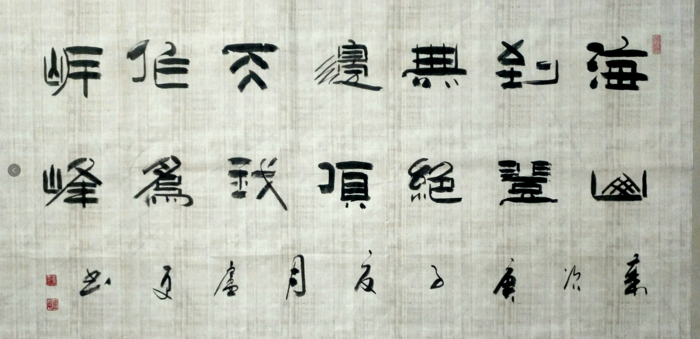 海到無邊天作岸
山登絕頂我為峰
歲次庚子月書